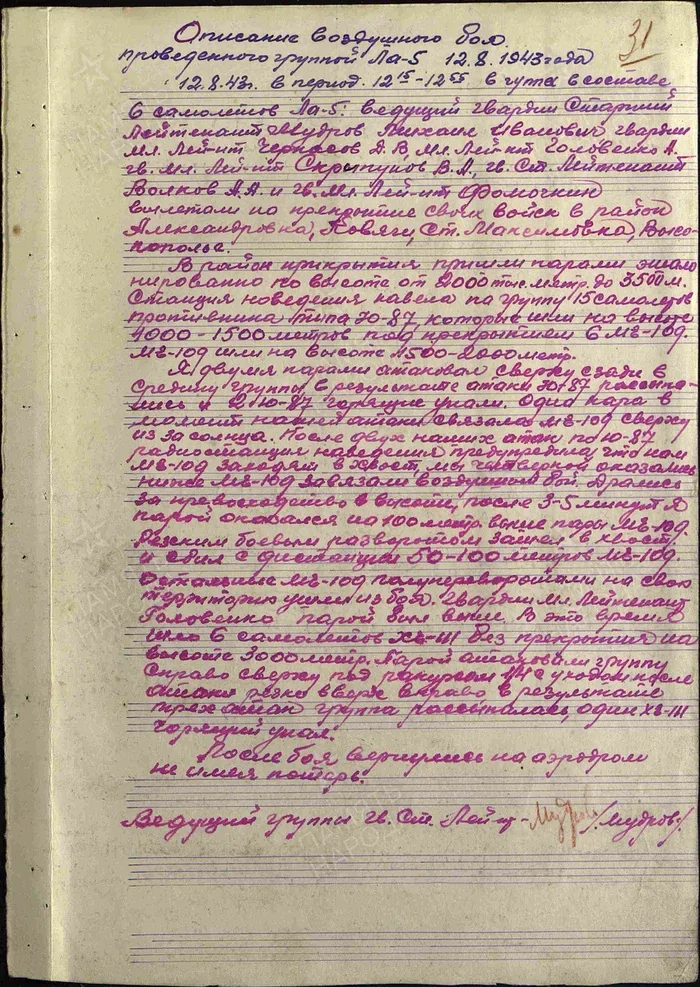 31
Описание воздушного боя
проведенного группой Ла-5 12.8.1943 года
12.8.43г. в период 12 15 - 12 55 в группе в составе
6 самолетов Ла-5: ведущий гвардии Старший
Лейтенант Мудров Михаил Иванович гвардии
Мл. Лей-нт Черкасов Д.В, Мл. Лей-нт Головенко А.
гв. мл. Лей-нт Скрыпунов В.А., гв. Ст. Лейтенант
Волков А.А и гв. Мл. Лей-нт Фомочкин
вылетали на прекрытие своих войск в район
Александровка, Ковяги, Ст. Максимовка, Высо-
кополье.
В район прикрытия пришли парами эшало
нированно по высоте от 2000 тыс. метр. до 3500 м.
Станция наведения навела на группу 15 самолетов
противника типа Ю-87, которые шли на высоте
4000-1500 метров под прекрытием 6 Мѣ-109.
Мѣ-109 шли на высоте 1500-2000 метр.
Я двумя парами атаковал сверху сзади в
средину группы, в результате атаки Ю-87 рассыпа-
лись и 2 Ю-87 горящие упали. Одна пара в
момент нашей атаки связала Мѣ-109 сверху
из за солнца. После двух наших атак по Ю-87
радиостанция наведения предупредила что нам
Мѣ-109 заходят в хвост, мы четверкой оказались
ниже Мѣ-109 завязали воздушный бой. Дрались
за превосходство в высоте, после 3-5 минут я
парой оказался на 100 метр. выше пары Мѣ-109.
Резким боевым разворотом зашел в хвост
и сбил с дистанции 50-100 метров Мѣ-109.
Остальные Мѣ-109 полупереворотами на свою
территорию ушли из боя. Гвардии Мл. Лейтенант
Головенко парой был выше. В это время
шло 6 самолетов Хѣ-111 без прекрытия на
высоте 3000 метр. Парой атаковали группу
справо сверху под ракурсом 1/4 с уходом после
атаки резко вверх вправо в результате
трех атак группа рассыпалась, один Хѣ-111
горящий упал.
После боя вернулись на аэродром
не имея потерь.
Ведущий группы гв. Ст. Лей-нт - Мудров /Мудров/.